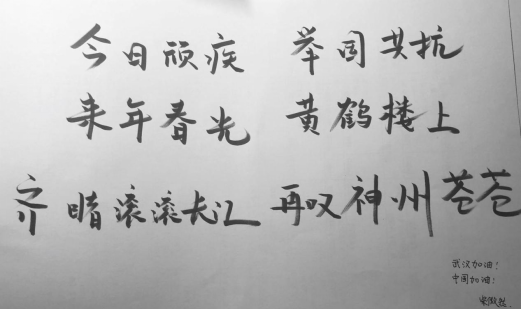 今日顽疾 举国共抗
来年春光 黄鹤楼上
齐晴滚滚长江 再叹神州苍苍
武汉加油!
中国加油!